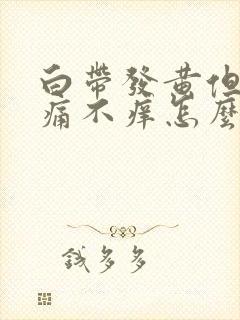 白帶發黃但
痛不痒怎麼
錢多多